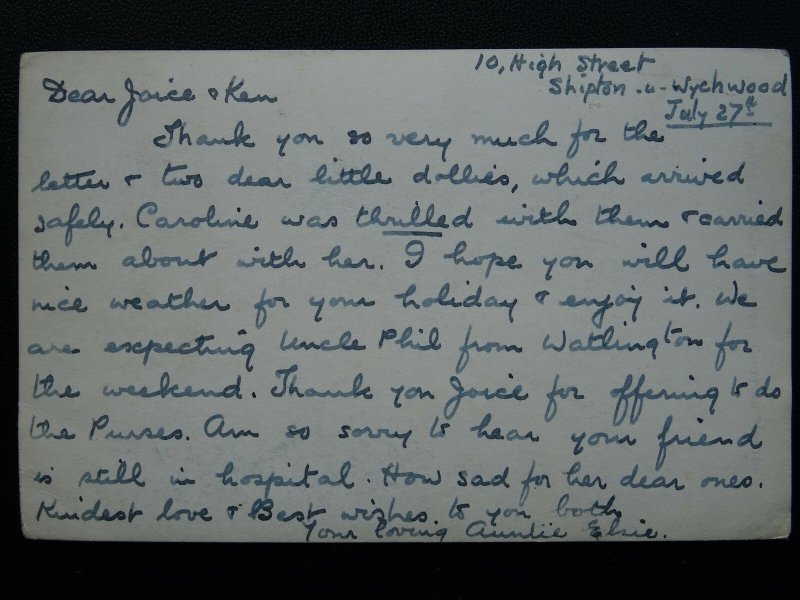 10, High Street
Shipton-u-Wychwood
July 27th
Dear Joice & Ken
Thank you so very much for the
letter & two dear little dollies, which arrived
safely. Caroline was thrilled with them & carried
them about with her. I hope you will have
nice weather for your holiday & enjoy it. We
are expecting Uncle Phil from Watlington for
the weekend. Thank you Joice for offering to do
the Purses. Am so sorry to hear your friend
is still in hospital. How sad for her dear ones.
Kindest love & Best wishes to you both
Your loving Auntie Elsie.